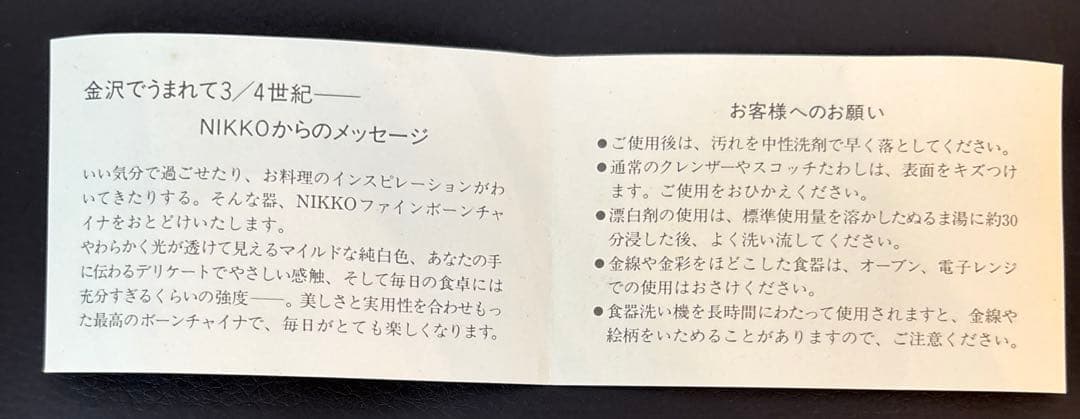 金沢でうまれて3／4世紀――
NIKKOからのメッセージ
いい気分で過ごせたり、お料理のインスピレーションがわ
いてきたりする。そんな器、NIKKOファインボーンチャ
イナをおとどけいたします。
やわらかく光が透けて見えるマイルドな純白色、あなたの手
に伝わるデリケートでやさしい感触、そして毎日の食卓には
充分すぎるくらいの強度――。美しさと実用性を合わせもっ
た最高のボーンチャイナで、毎日がとても楽しくなります。
お客様へのお願い
●ご使用後は、汚れを中性洗剤で早く落としてください。
●通常のクレンザーやスコッチたわしは、表面をキズつけ
ます。ご使用をおひかえください。
●漂白剤の使用は、標準使用量を溶かしたぬるま湯に約30
分浸した後、よく洗い流してください。
●金線や金彩をほどこした食器は、オーブン、電子レンジ
での使用はおさけください。
●食器洗い機を長時間にわたって使用されますと、金線や
絵柄をいためることがありますので、ご注意ください。